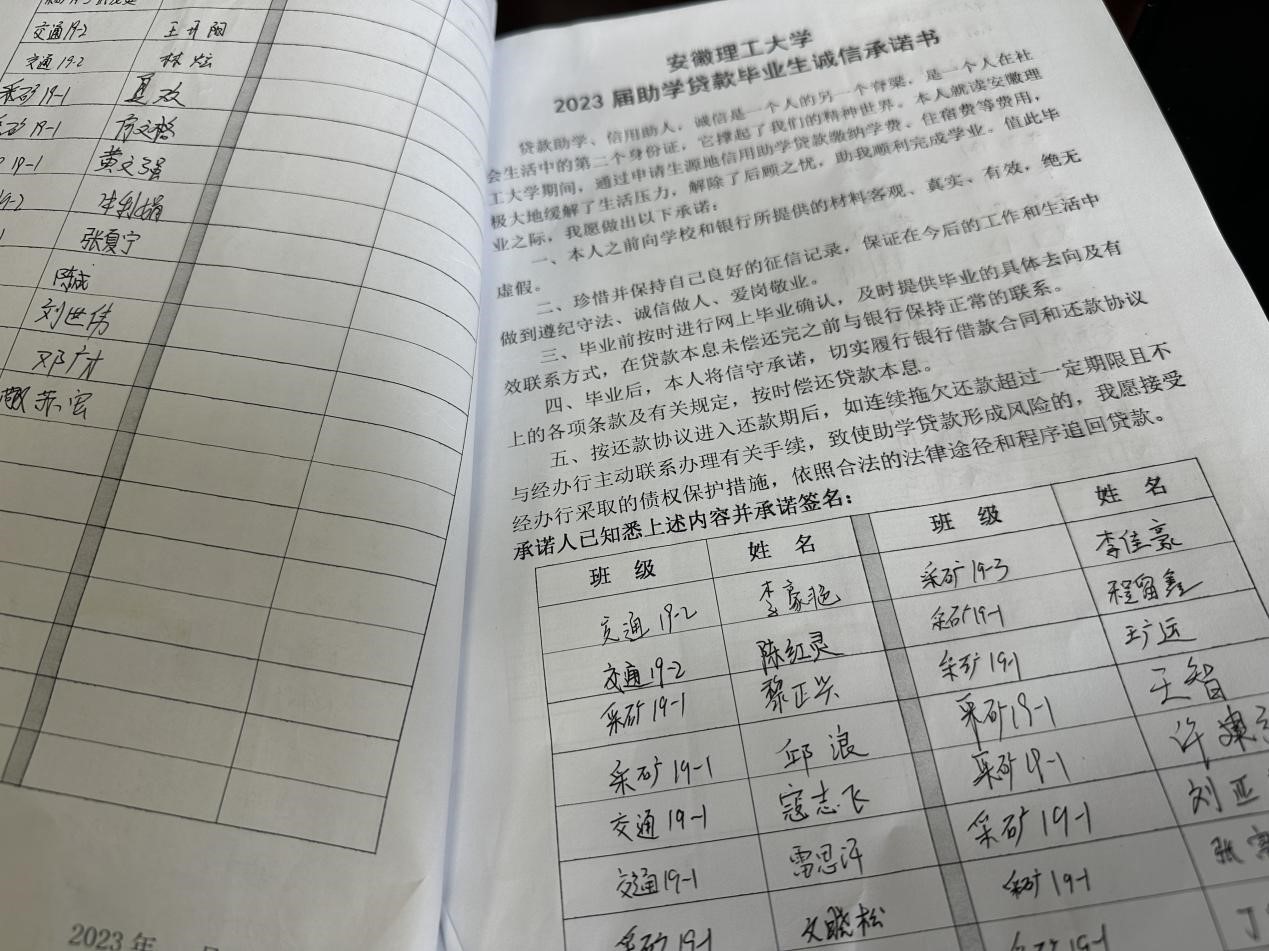 交通19-2 王丹阳
交通19-2 林炫
采矿19-1 夏双
19-1
19-1 黄文强
张夏宁
陈诚
刘世伟
邓广才
2023年 月
安徽理工大学
2023届助学贷款毕业生诚信承诺书
贷款助学、信用助人，诚信是一个人的另一个脊梁，是一个人在社
会生活中的第二个身份证，它撑起了我们的精神世界。本人就读安徽理
工大学期间，通过申请生源地信用助学贷款缴纳学费、住宿费等费用，
极大地缓解了生活压力，解除了后顾之忧，助我顺利完成学业。值此毕
业之际，我愿做出以下承诺：
一、本人之前向学校和银行所提供的材料客观、真实、有效，绝无
虚假。
二、珍惜并保持自己良好的征信记录，保证在今后的工作和生活中
做到遵纪守法、诚信做人、爱岗敬业。
三、毕业前按时进行网上毕业确认，及时提供毕业的具体去向及有
效联系方式，在贷款本息未偿还完之前与银行保持正常的联系。
四、毕业后，本人将信守承诺，切实履行银行借款合同和还款协议
上的各项条款及有关规定，按时偿还贷款本息。
五、按还款协议进入还款期后，如连续拖欠还款超过一定期限且不
与经办行主动联系办理有关手续，致使助学贷款形成风险的，我愿接受
经办行采取的债权保护措施，依照合法的法律途径和程序追回贷款。
承诺人已知悉上述内容并承诺签名：
班 级 姓 名 班 级 姓 名
交通19-2 李豪艳 采矿19-3 李佳豪
交通19-2 陈红灵 采矿19-1 程留鑫
采矿19-1 黎正兴 采矿19-1 王广运
采矿19-1 邱浪 采矿19-1 王智
交通19-1 寇志飞 采矿19-1 许
交通19-1 雷思汗 采矿19-1 刘亚
采矿19-1 文晓松 采矿19-1 张
采矿19-1 丁